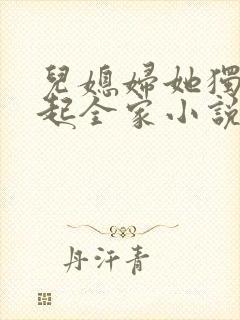 兒媳婦她獨
起全家小說
丹汗青